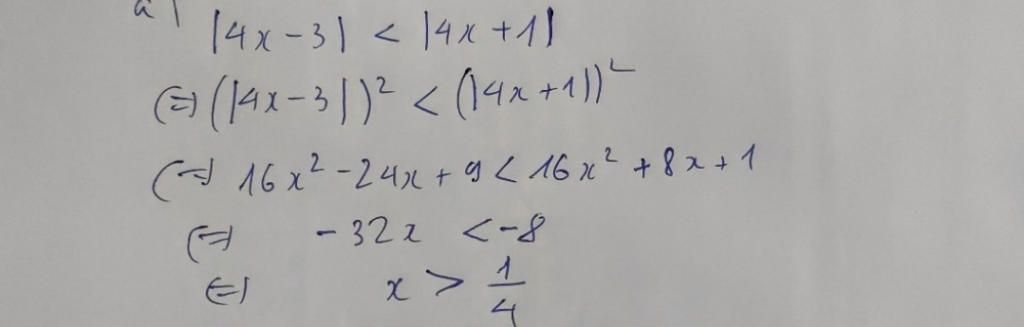 a) |4x - 3| < |4x + 1|
(=) (|4x - 3|)² < (|4x + 1|)²
(=) 16x² - 24x + 9 < 16x² + 8x + 1
(=) - 32x < -8
(=) x > 1/4